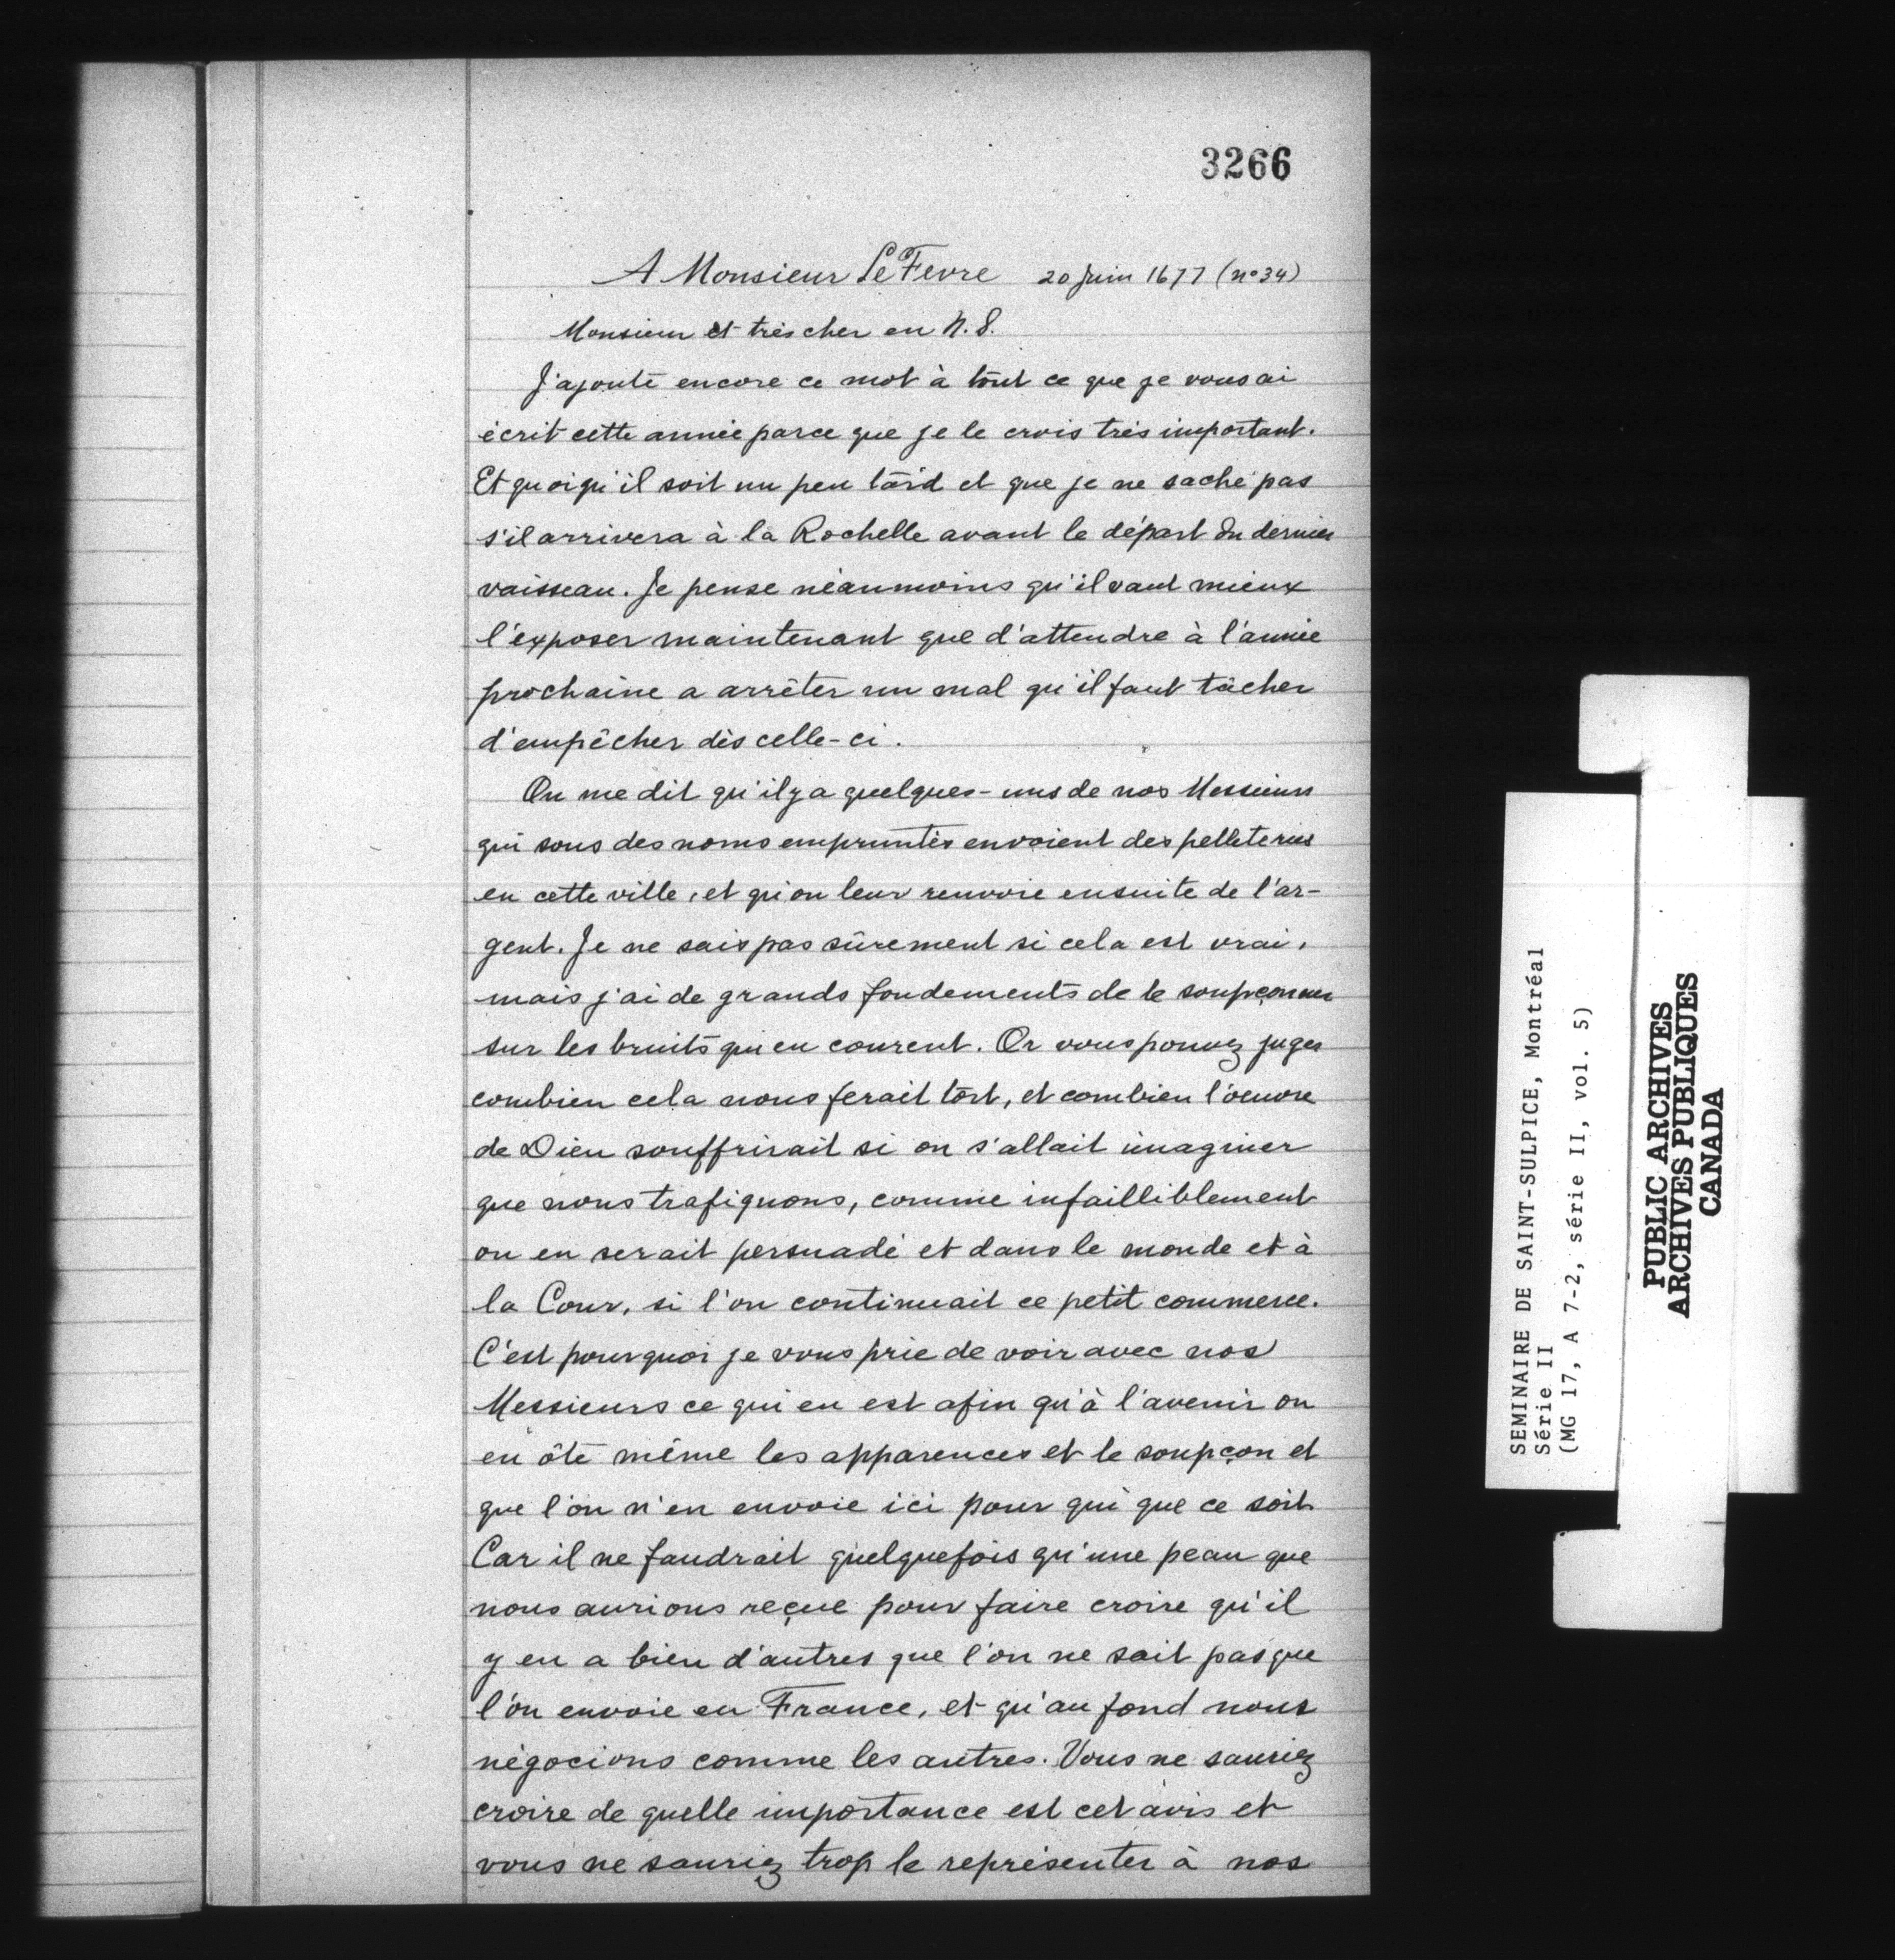 3266
A Monsieur Le Fevre 20 Juin 1677 (n° 34)
Monsieur et très cher en N. S.
J'ajoute encore ce mot à tout ce que je vous ai
écrit cette année parce que je le crois très important.
Et quoiqu'il soit un peu tard et que je ne sache pas
s'il arrivera à la Rochelle avant le départ du dernier
vaisseau. Je pense néanmoins qu'il vaut mieux
l'exposer maintenant que d'attendre à l'année
prochaine a arrêter un mal qu'il faut tâcher
d'empêcher dès celle-ci.
On me dit qu'il y a quelques-uns de nos Messieurs
qui sous des noms empruntés envoient des pelleteries
en cette ville, et qu'on leur renvoie ensuite de l'ar-
gent. Je ne sais pas sûrement si cela est vrai,
mais j'ai de grands fondements de le soupçonner
sur les bruits qui en courent. Or vous pouvez juger
combien cela nous ferait tort, et combien l'oeuvre
de Dieu souffrirait si on s'allait imaginer
que nous trafiquons, comme infailliblement
on en serait persuadé et dans le monde et à
la Cour, si l'on continuait ce petit commerce.
C'est pourquoi je vous prie de voir avec nos
Messieurs ce qui en est afin qu'à l'avenir on
en ôte même les apparences et le soupçon et
que l'on n'en envoie ici pour qui que ce soit
Car il ne faudrait quelquefois qu'une peau que
nous aurions reçue pour faire croire qu'il
y en a bien d'autres que l'on ne sait pas que
l'on envoie en France, et qu'au fond nous
négocions comme les autres. Vous ne sauriez
croire de quelle importance est cet avis et
vous ne sauriez trop le représenter à nos
SEMINAIRE DE SAINT-SULPICE, Montréal
Série II
(MG 17, A 7-2, série II, vol. 5)
PUBLIC ARCHIVES
ARCHIVES PUBLIQUES
CANADA